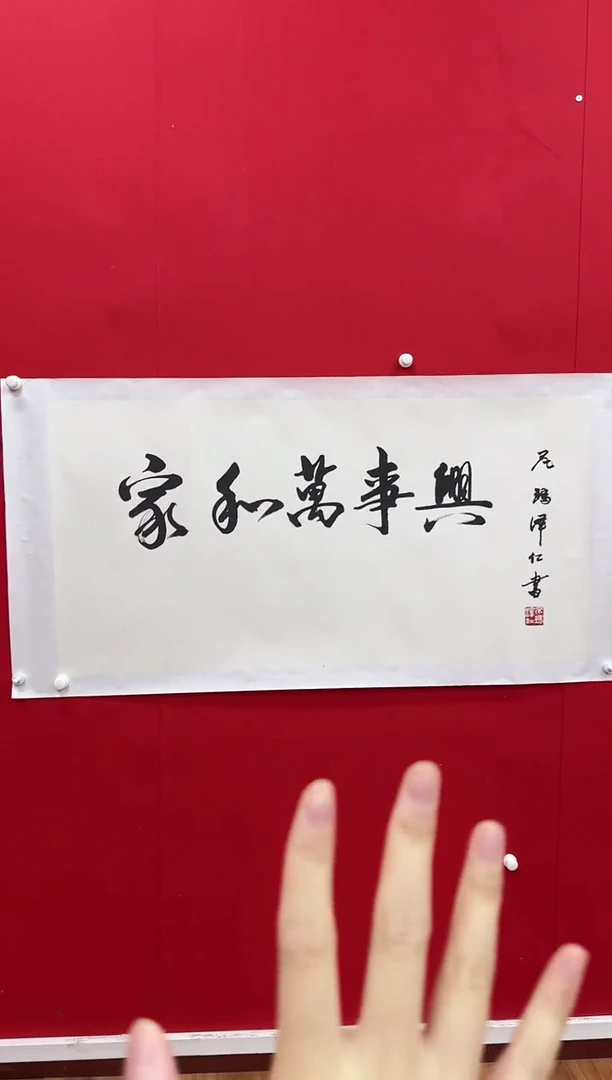 家和萬事興
尼瑪澤仁書